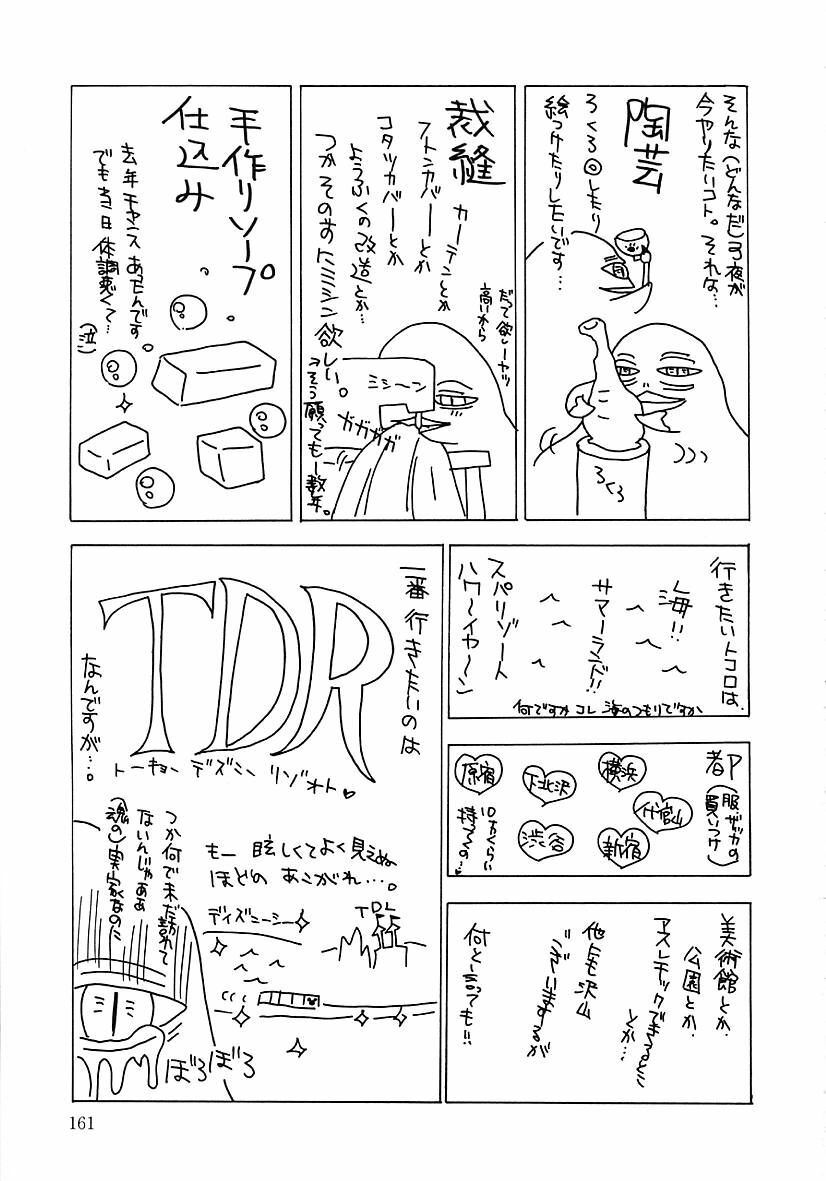 そんな(どんなだ)弓夜が
今ヤりたいコト。それな…
陶芸
ろくろ◎したり
絵つけたりしたいです…
ろくろ
裁縫
カーテンとか
フトンカバーとか
コタツカバーとか
ようふくの改造とか…
つかそのまえにミシン欲しい。
だって欲しーヤツ
高いから
ミシーン
ガガガガ
→そう願っても一数年。
手作りソープ
仕込み
去年チャンスあったんです
でも当日体調悪くて…
(泣)
行きたいトコロは、
海!!
サマーランド!!
スパリゾート
ハワ〜イヤ〜ン
何ですかコレ 海のつもりですか
都
(服・ザッカの
買いつけ)
横浜
代官山
新宿
下北沢
渋谷
原宿
10万くらい
持ってくの…♥
美術館とか、
公園とか、
アスレチックできるとこ
とか…
他にも沢山
ございまするが
何と言っても!!
一番行きたいのは
TDR
トーキョー ディズニー リゾォト♥
なんですが…。
もー 眩しくてよく見えぬ
ほどの あこがれ…。
ディズニーシー
TDL
つか何で未だ訪れて
ないんじゃああ
(魂の)実家なのに
ぼろぼろ
161